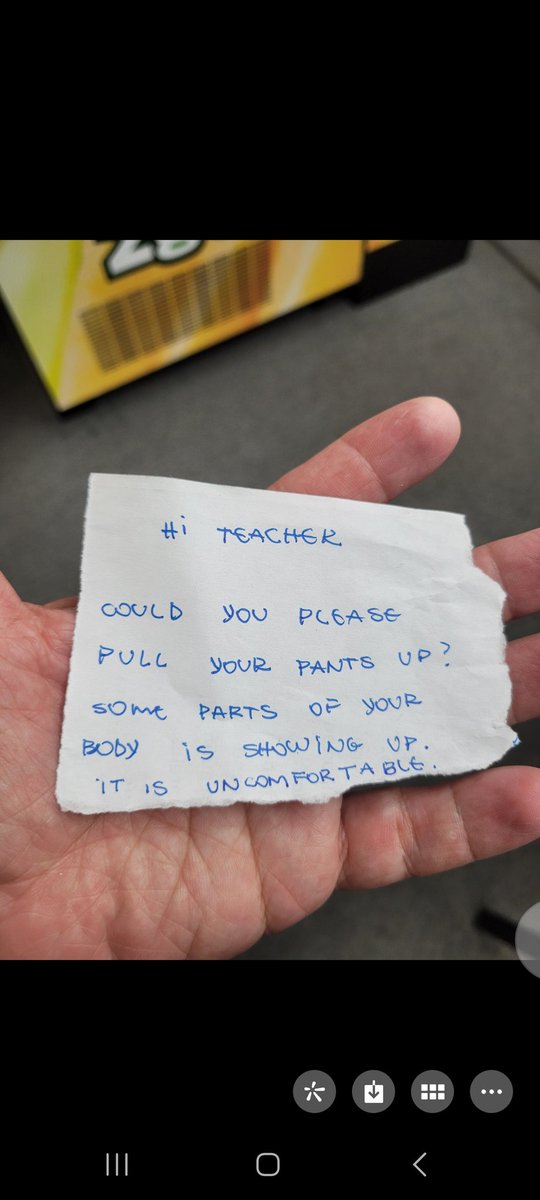 28
Hi TEACHER
COULD YOU PLEASE
PULL YOUR PANTS UP?
SOME PARTS OF YOUR
BODY iS SHOWiNG UP.
iT iS UNCOMFORTABLE.